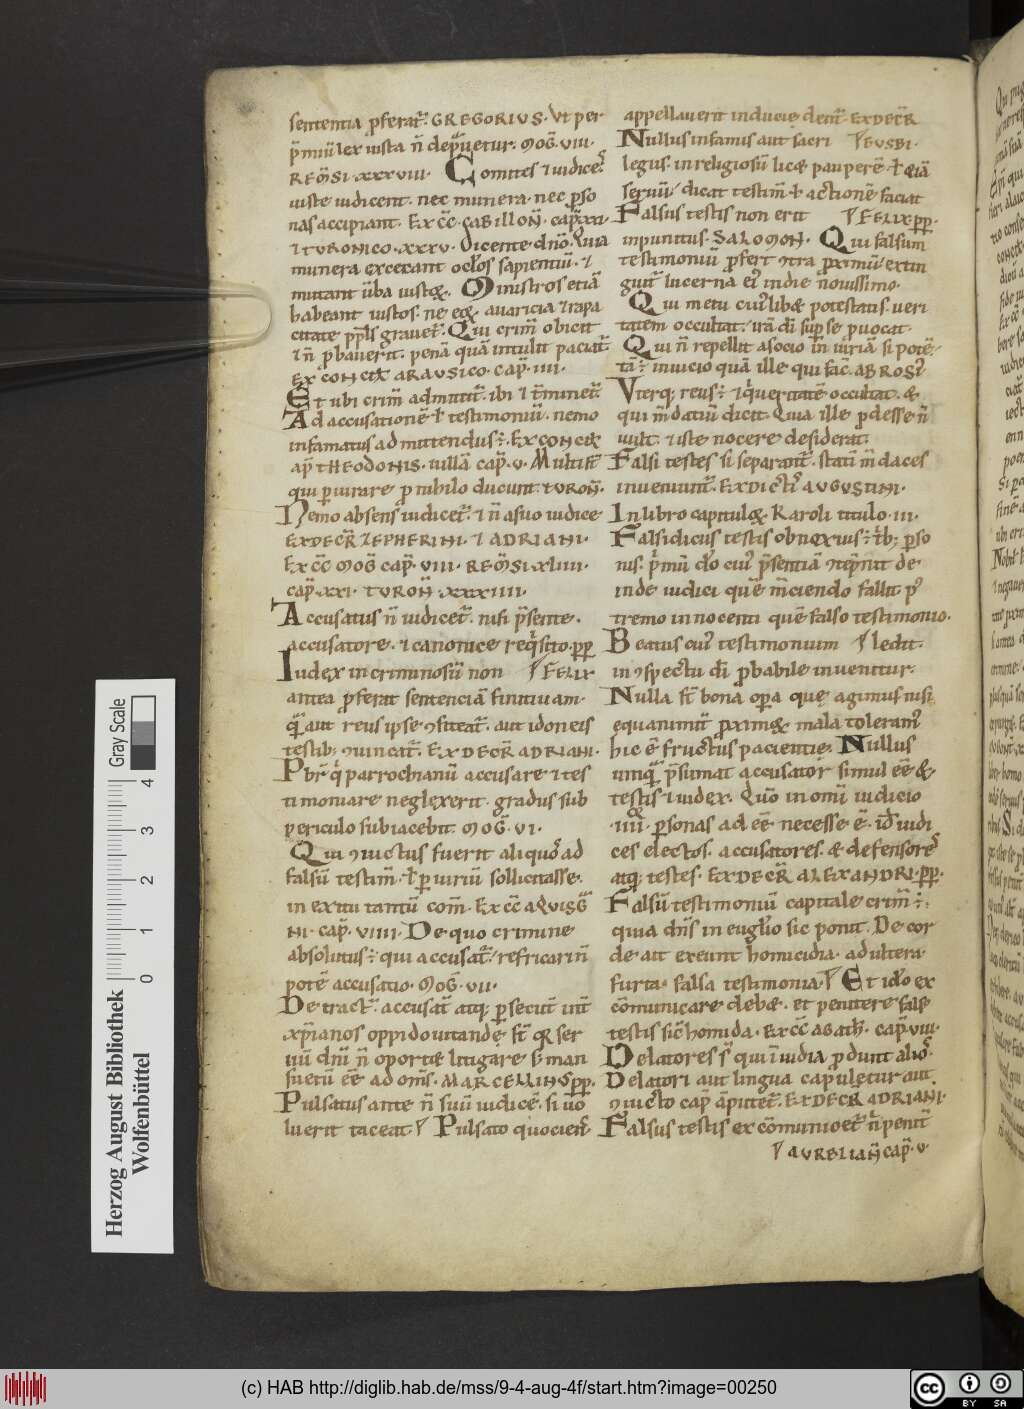 sententia ꝓferat᷑. GREGORIVS. Vt per
p̄miū lex iusta n̄ depͣuetur. MOḠ. VIII.
REM̄SI. XXXVIII. Comites ⁊ iudices
iuste iudicent. nec munera. nec ꝑso
nas accipiant. Ex CC̄. CABILLON̄. cap̄. XXI.
⁊ TVRONICO. XXXV. Dicente dn̄o. Quia
munera excecant oc̄los sapientiū. ⁊
mutant ūba iustoꝝ. Ministros etiā
habeant iustos. ne eoꝝ auaricia ⁊ rapa
citate pp̄ls grauet᷑. Qui crim̄ obicit
⁊ n̄ ꝓbauerit. penā quā intulit paciat᷑
EX CONCIL̄ ARAVSICO. CAP̄. IIII.
Et ubi crim̄ admittit᷑. ibi ⁊ t̄minet᷑.
Ad accusationē ł testimoniū. nemo
infamatus admittendus ÷. EX CONCIL̄
ap̄ THEODONIS. uillā cap̄. V. Multi st̄
qui ꝑiurare ꝓ nihilo ducunt. TVRON̄.
Nemo absens iudicet᷑. ⁊ n̄ a suo iudice
EX DECR̄ ZEPHERINI. ⁊ ADRIANI.
EX CC̄ MOḠ CAP̄. VIII. REM̄SI. XLIIII.
CAP̄. XXI. TVRON̄. XXXIIII.
Accusatus n̄ iudicet᷑. nisi p̄sente.
accusatore. ⁊ canonice reqͥsito. PP
Iudex in criminosū non FELIX
antea ꝓferat sentenciā finitiuam.
qͣ̄ aut reus ipse ꝯfiteat᷑. aut idoneis
testibꝫ ꝯuincat᷑. EX DECR̄ ADRIANI.
Pbr̄ qͥ parrochianū accusare ⁊ tes
timoniare neglexerit. gradus sub
periculo subiacebit. MOḠ. VI.
Qui ꝯuictus fuerit aliquoͩ ad
falsū testim̄. ł ꝑiuriū sollicitasse.
in exitu tantū com̄. EX CC̄ AQVISGͣ
NI. CAP̄. VIIII. De quo crimine
absolutus ÷ qui accusat᷑. refricari n̄
potē accusatio. MOḠ. VII.
De tract̄. accusat̄ atqꝫ ꝑsecut̄ int̄
xp̄ianos oppido uitandę. st̄ qꝛ ser
uū dn̄i n̄ oportet litigare s; man
suetū eē ad om̄s. MARCELLINꝰ PP.
Pulsatus ante n̄ suū iudicē. si uo
luerit taceat. Pulsato quociens
appellauerit inducię dent᷑. EX DECR̄
Nullus infamis aut sacri EVSEBI.
legus. in religiosū licet pauperē. ł etiā
seruū. dicat testim̄. ł actionē faciat
Falsus testis non erit FELIX PP.
inpunitus. SALOMON. Qui falsum
testimoniū ꝓfert ꝯtra ꝓximū. extin
guit᷑ lucerna eiꝰ in die nouissimo.
Qui metu cuiꝰlibet potestatis. ueri
tatem occultat. irā di sup se ꝓuocat.
Qui n̄ repellit a socio in iuriā si potē.
tā ÷ in uicio quā ille qui fac̄. ABROSꝰ
Vterqꝫ reus ÷. ⁊ qͥ ueritatē occultat. &
qui m̄datiū dicit. Quia ille ꝓdesse n̄
uult. ⁊ iste nocere desiderat.
Falsi testes si separant᷑. statī m̄daces
inueniunt᷑. EX DICTIS AVGVSTINI.
In libro capituloꝝ. Karoli titulo. III.
Falsidicus testis obnoxius ÷ tͥbꝫ ꝑso
nis. pͥmū do cuiꝰ p̄sentiā ꝯtēpnit de
inde iudici quē m̄ciendo fallit. pꝰ
tremo innocenti quē falso testimonio.
Beatus cuiꝰ testimonium ledit.
in ꝯspectu di ꝓbabile inuenitur.
Nulla st̄ bona opa que agimus nisi
equanimit̄ ꝓximoꝝ mala toleramꝰ
hic ē fructus pacientie. Nullus
umqͣ̄ p̄sumat accusator simul eē &
testis ⁊ iudex. Quō in omī iudicio
.IIII. ꝑsonas adeē necesse ē. id iudi
ces electos. accusatores. & defensores
atqꝫ testes. EX DECR̄ ALEXANDRI. PP.
Falsū testimoniū capitale crim̄ ÷.
quia dn̄s in eug̅lio sic ponit. De cor
de aīt exeunt homicidia. adulteria.
furta. falsa testimonia. Et ido ex
cōmunicare debet. et penitere falsꝰ
testis sic̄ homida. EX CC̄ AGATH̄. CAP̄. VIII.
Delatores st̄ qui iuidia ꝓdunt alios.
Delatori aut lingua capuletur aut
ꝯuicto cap̄ āputet᷑. EX DECR̄ ADRIANI.
Falsus testis excōmunioet᷑ n̄ penit̄
AVRELIAN̄ CAP̄. V.
Gray Scale
0 1 2 3 4
Herzog August Bibliothek
Wolfenbüttel
(c) HAB http://diglib.hab.de/mss/9-4-aug-4f/start.htm?image=00250
cc BY SA